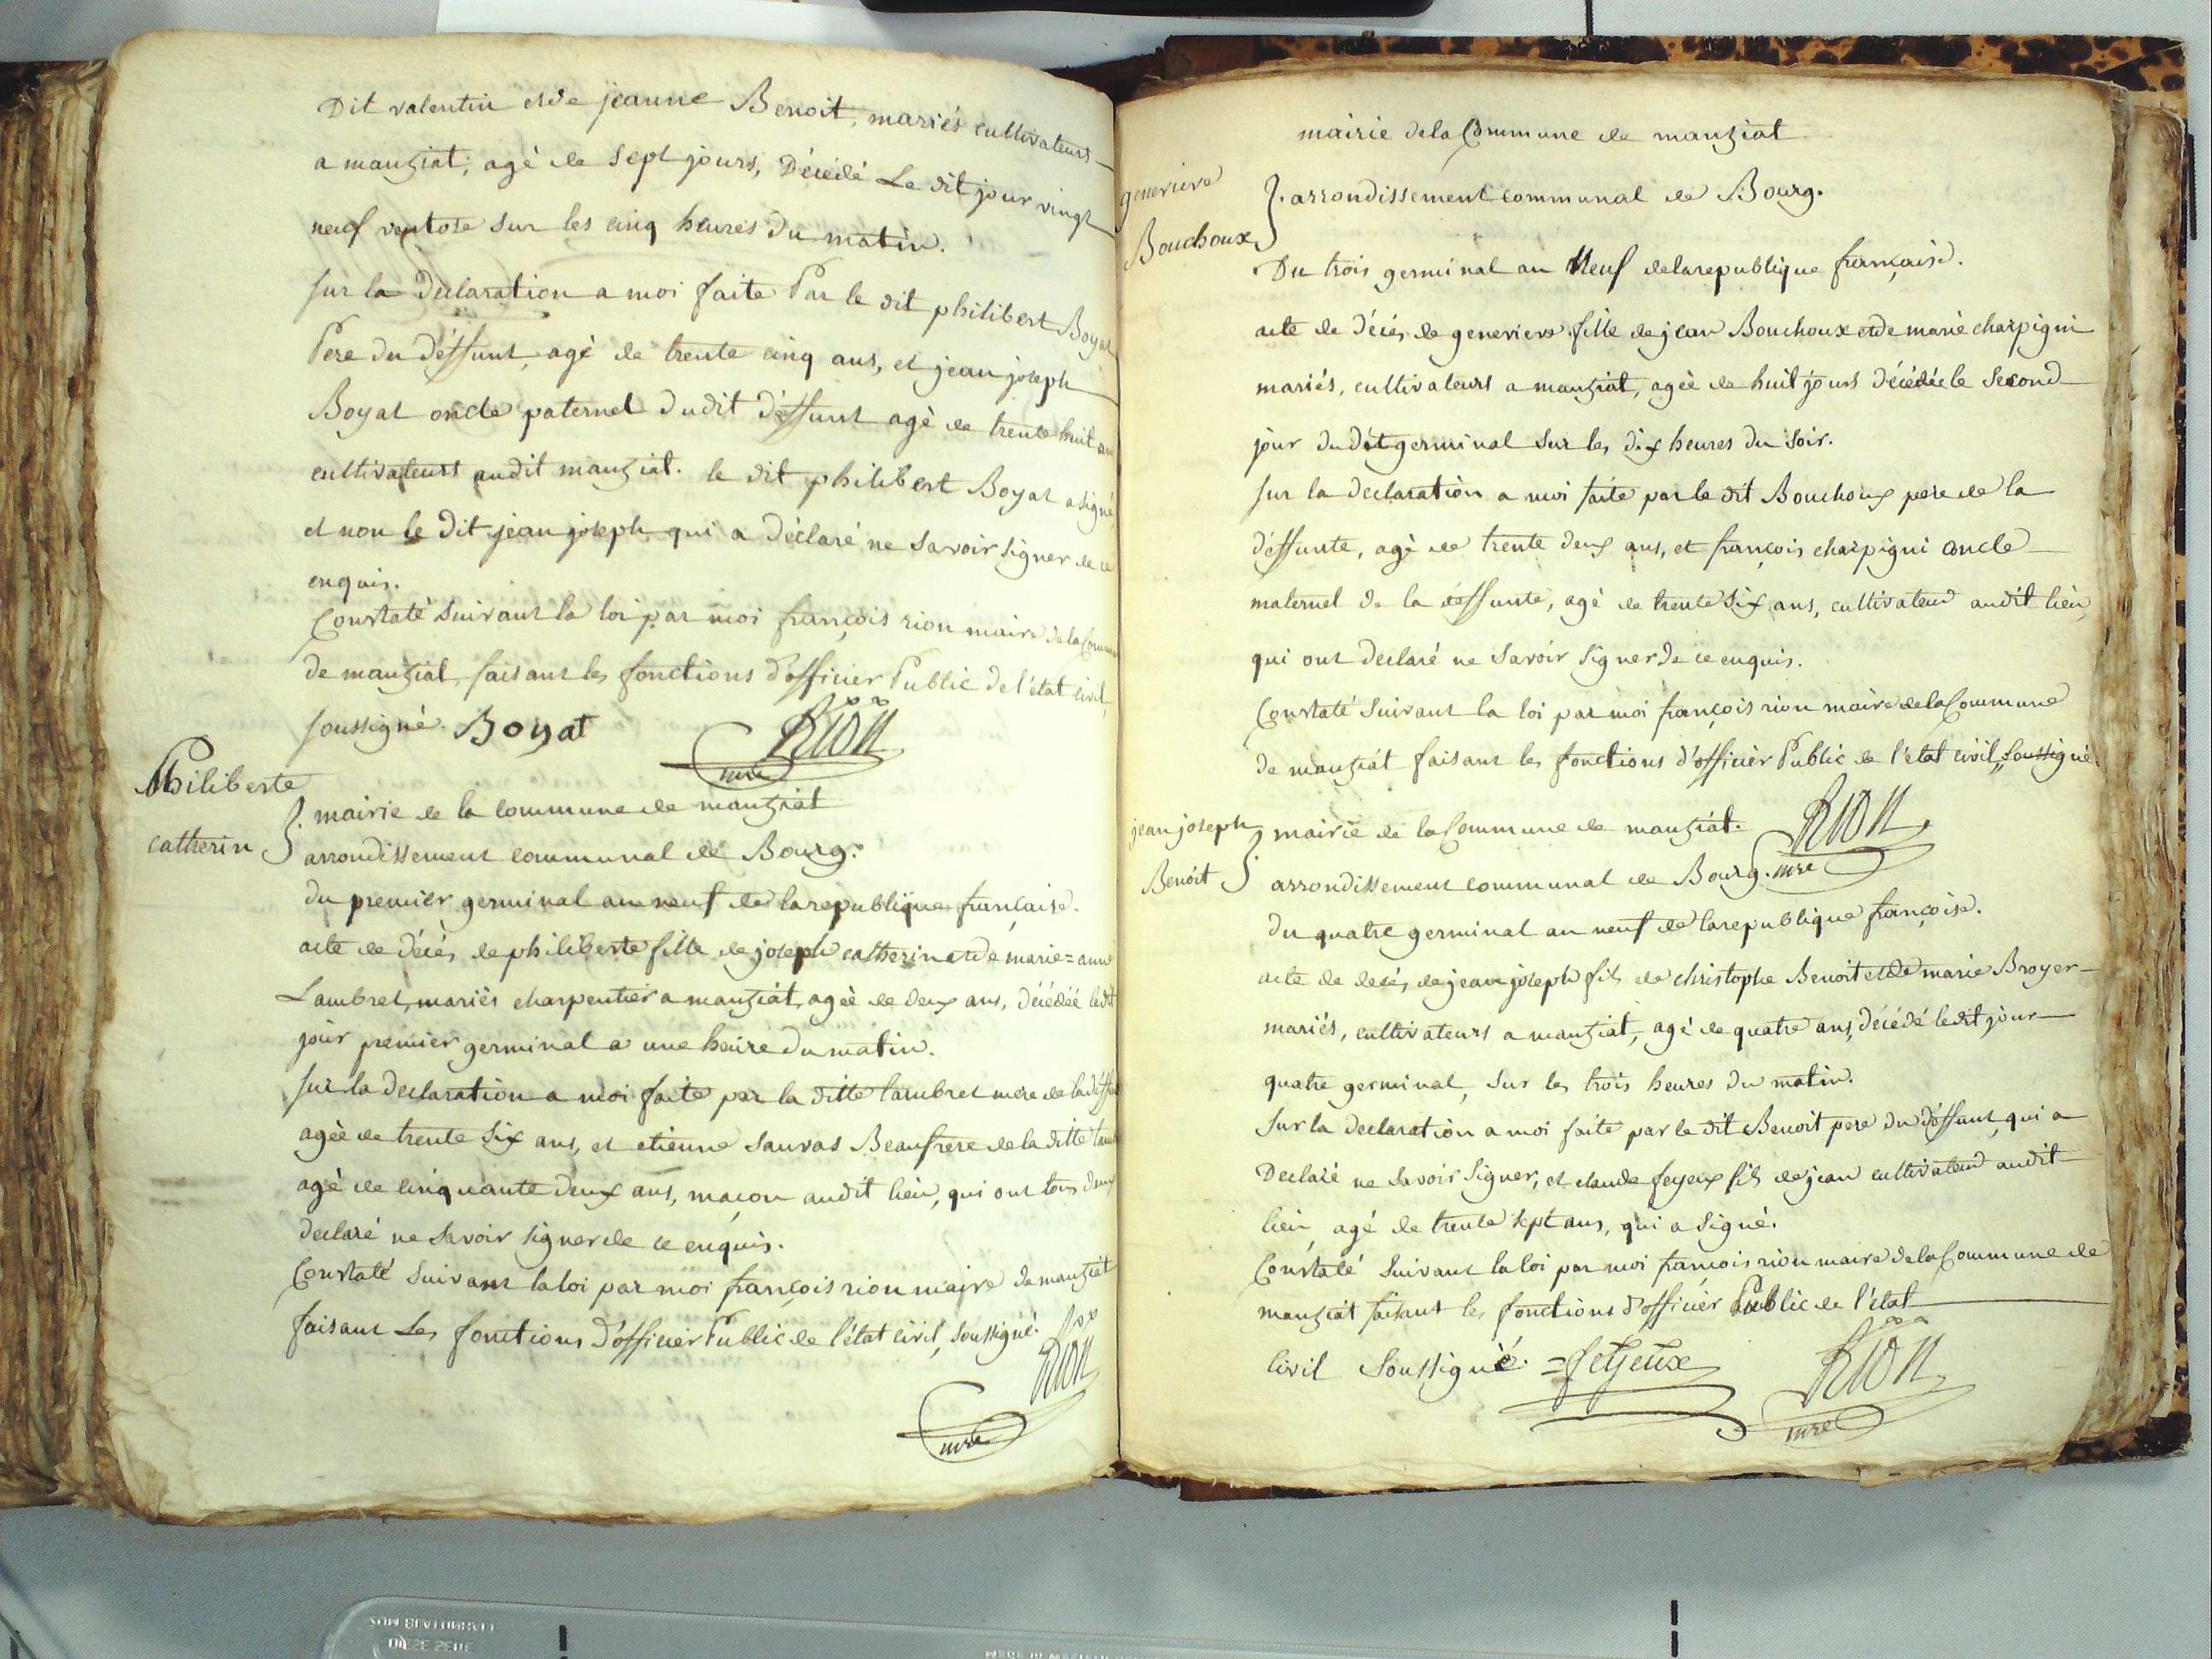 Dit valentin et de jeanne Benoit, mariés cultivateurs
a manziat, agé de sept jours, Décédé Le dit jour vingt
neuf ventose sur les cinq heures du matin.
sur la Declaration a moi faite Par le dit philibert Boyat
Pere du deffunt, agé de trente cinq ans, et jean joseph
Boyat oncle paternel dudit déffunt agé de trente huit an
cultivateurs audit manziat. le dit philibert Boyat a signé
et non le Dit jean joseph qui a Déclaré ne Savoir signer de ce
enquis.
Constaté suivant la loi par moi françois rion maire de la Commu
de manziat, faisant les fonctions d'officier Public de l'état civil,
soussigné. Boyat Rion
mre
Philiberte
catherin
mairie de la commune de manziat
arrondissement communal de Bourg.
du premier germinal an neuf de la republique française.
acte de décés de philiberte fille de joseph catherin et de marie=anne
Lambret, mariés charpentier a manziat, agée de deux ans, décédée ledit
jour premier germinal a une heure du matin.
sur la declaration a moi faite par la ditte lambret mere de la déffu
agée de trente six ans, et etienne sauvas Beaufrere de la ditte lam
agé de cinquante deux ans, maçon audit lieu, qui ont tous deux
declaré ne savoir signer de ce enquis.
Constaté suivant la loi par moi françois rion maire de manziat
faisant Les fonctions d'officier Public de l'état civil, soussigné.
Rion
mre
mairie de la Commune de manziat
genevieve
Bouchoux
arrondissement communal de Bourg.
Du trois germinal an Neuf de la republique française.
acte de décés de genevieve fille de jean Bouchoux et de marie charpigni
mariés, cultivateurs a manziat, agée de huit jours décédée le second
jour dudit germinal sur les dix heures du soir.
sur la declaration a moi faite par le dit Bouchoux pere de la
déffunte, agé de trente deux ans, et françois charpigni oncle
maternel de la déffunte, agé de trente six ans, cultivateur audit lieu,
qui ont declaré ne savoir signer de ce enquis.
Constaté suivant la loi par moi françois rion maire de la Commune
de manziat faisant les fonctions d'officier Public de l'état civil, soussigné.
Rion
mre
jean joseph
Benoit
mairie de la Commune de manziat.
arrondissement communal de Bourg.
du quatre germinal an neuf de la republique françoise.
acte de decés de jean joseph fils de christophe Benoit et de marie Broyer
mariés, cultivateurs a manziat, agé de quatre ans, décédé ledit jour
quatre germinal, sur les trois heures du matin.
sur la declaration a moi faite par le dit Benoit pere du déffunt, qui a
Declaré ne savoir signer, et claude feyeux fils de jean cultivateur audit
lieu, agé de trente sept ans, qui a signé.
Constaté suivant la loi par moi francois rion maire de la Commune de
manziat faisant les fonctions d'officier Public de l'état
civil soussigné. =feyeux Rion
mre